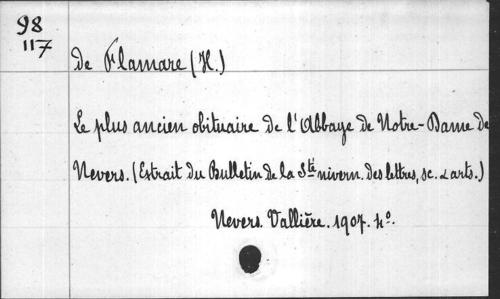 98
117
de Flamare (H.)
Le plus ancien obituaire de l'Abbaye de Notre-Dame de
Nevers. (Extrait du Bulletin de la Sté nivern. des lettres, sc. & arts.)
Nevers. Vallière. 1907. 4º.